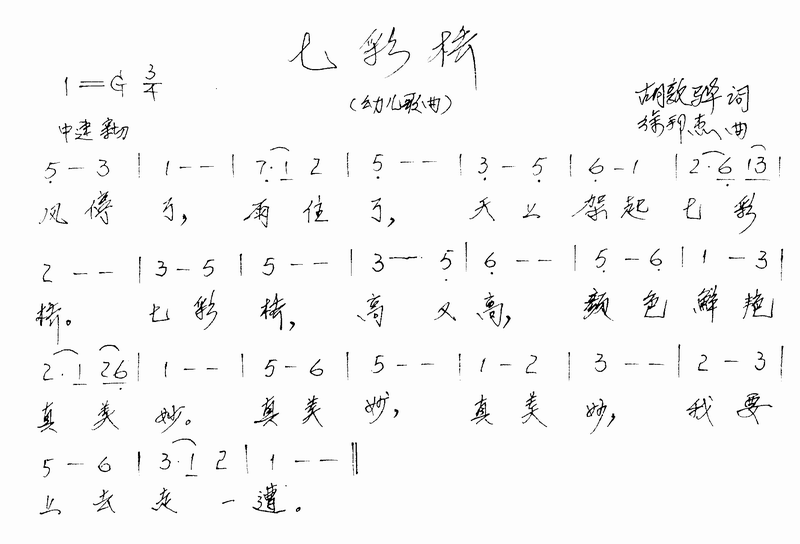 七彩桥
1=G 3/4
(幼儿歌曲)
胡敦骅 词
徐邦杰 曲
中速
5 - 3 | 1 - - | 7·1 2 | 5 - - | 3 - 5 | 6 - 1 | 2·6 13 |
风停了, 雨住了, 天上架起七彩
2 - - | 3 - 5 | 5 - - | 3 - 5 | 6 - - | 5 - 6 | 1 - 3 |
桥。 七彩桥, 高又高, 颜色鲜艳
2·1 26 | 1 - - | 5 - 6 | 5 - - | 1 - 2 | 3 - - | 2 - 3 |
真美妙。 真美妙, 真美妙, 我要
5 - 6 | 3·1 2 | 1 - - ‖
上去走一遭。